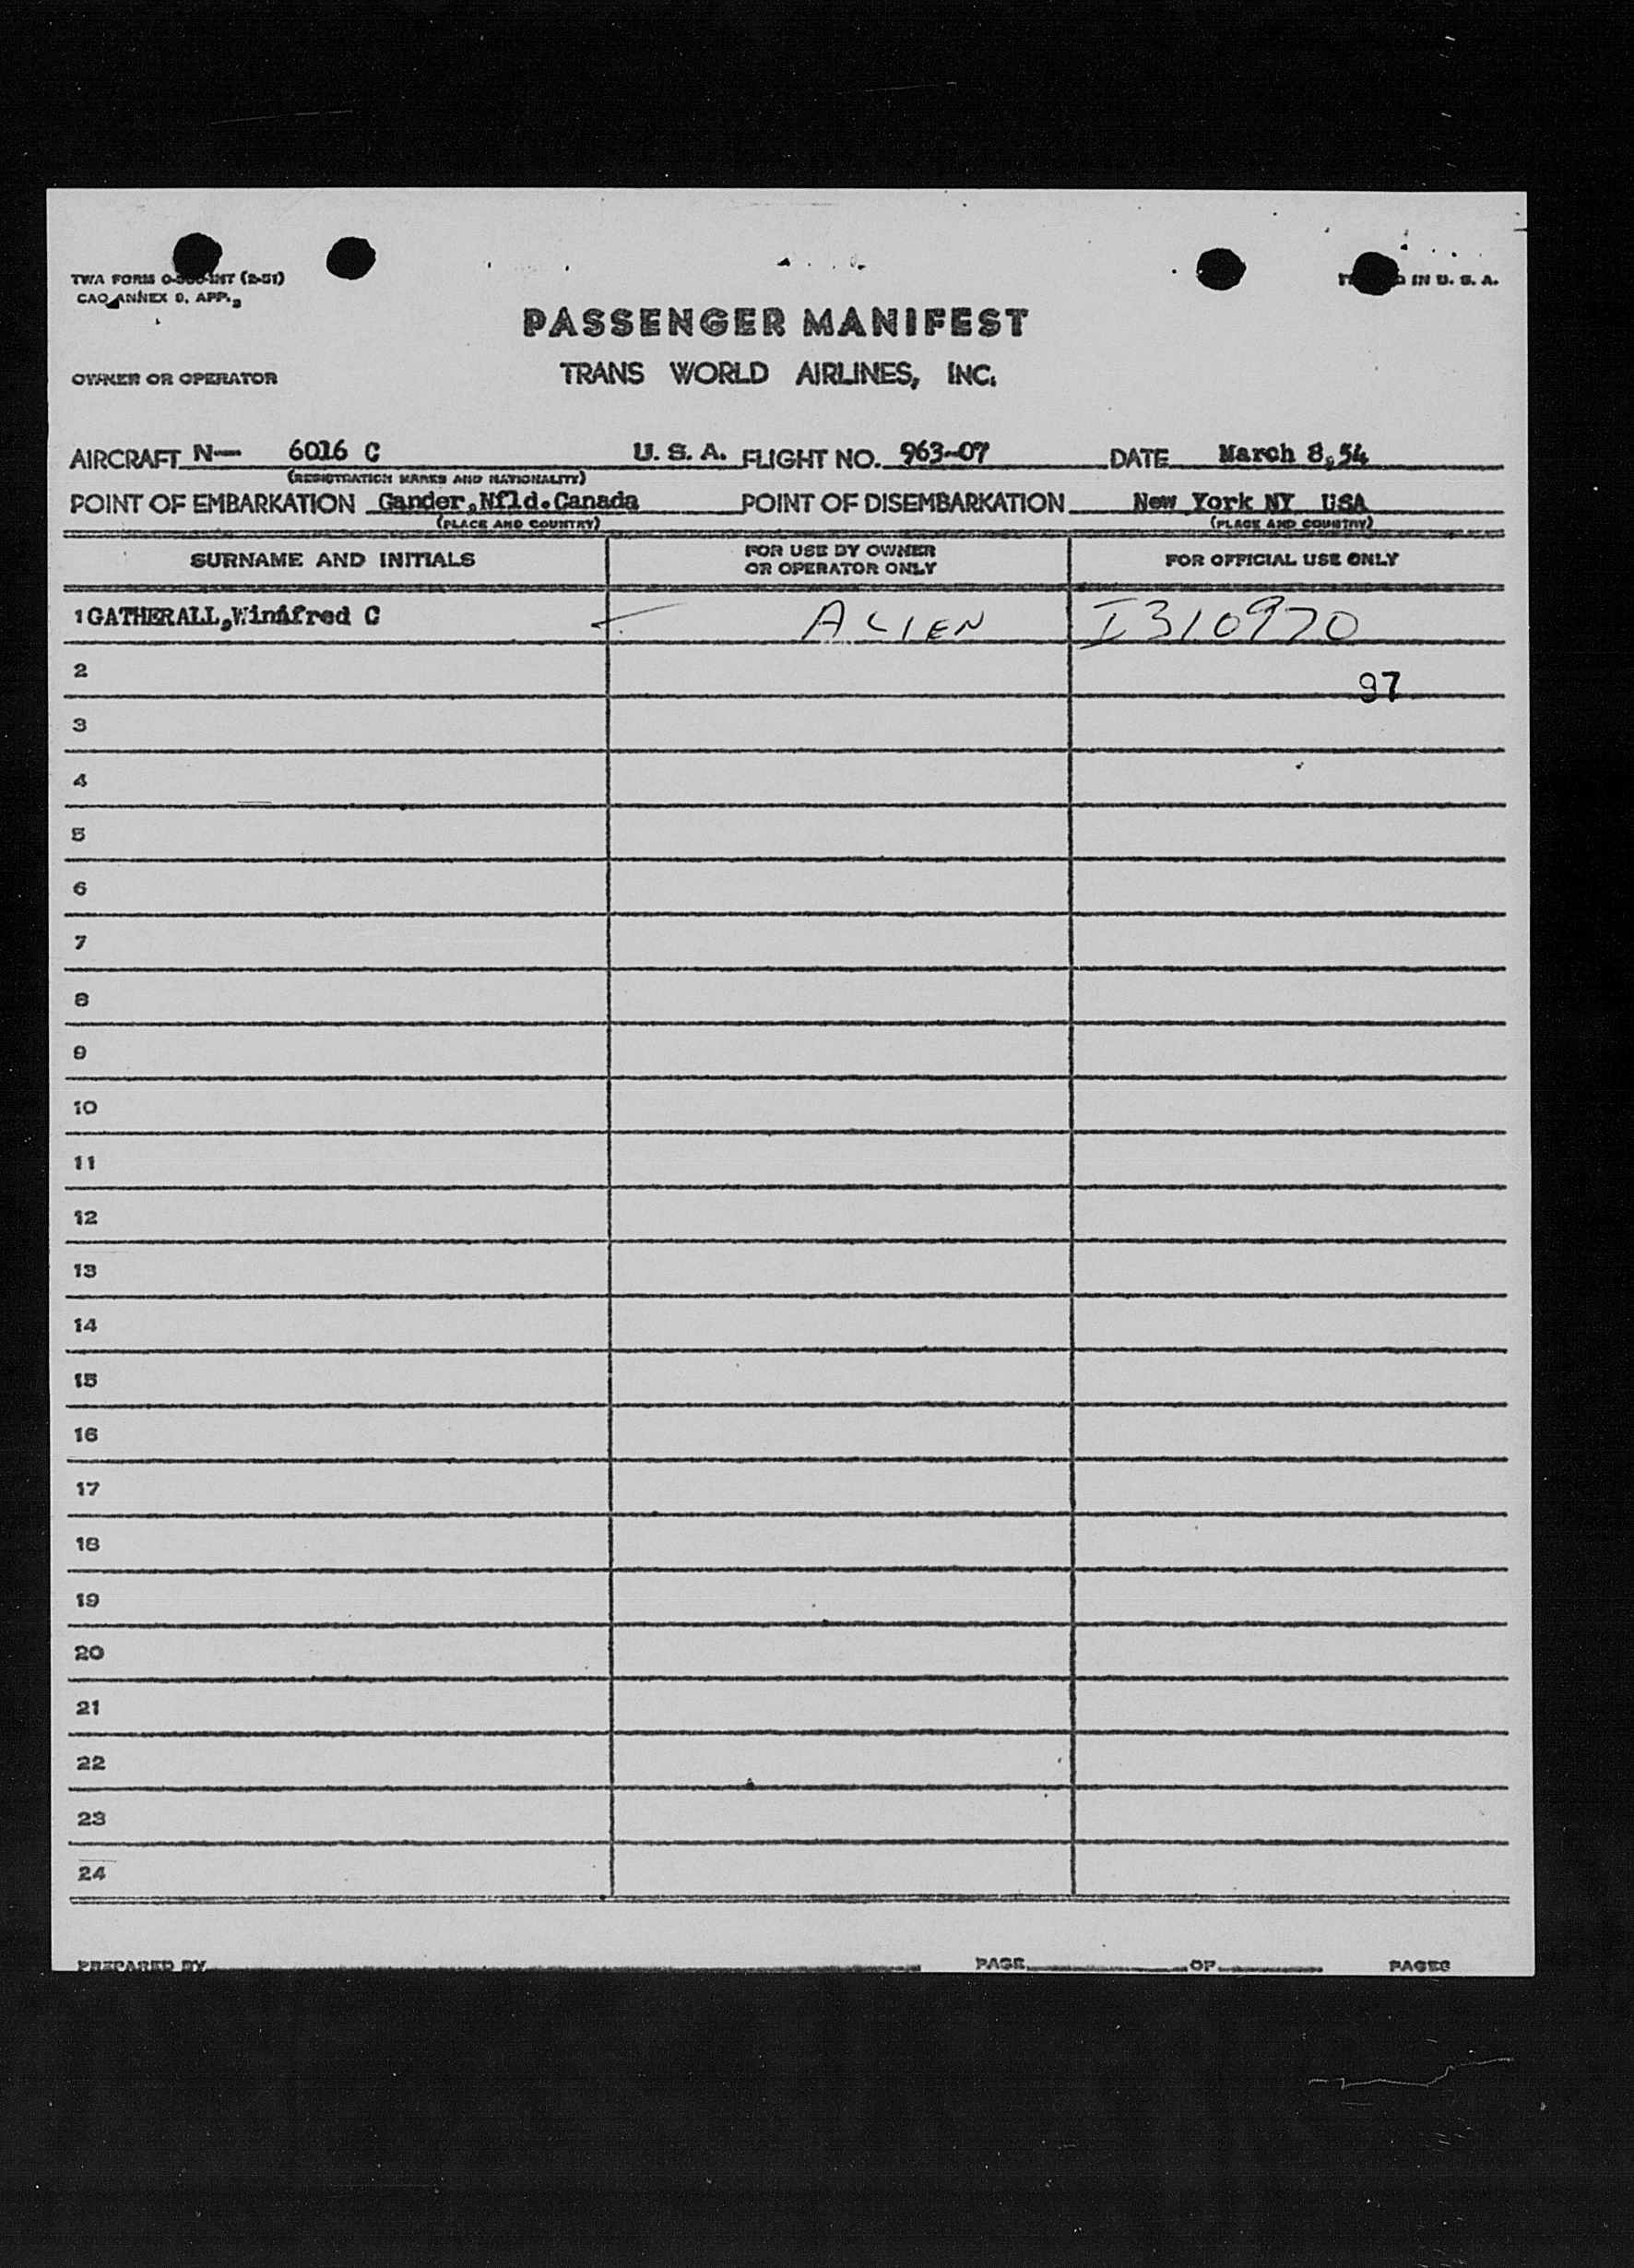 TWA FORM (2-51)
CAO ANNEX 9, APP.
IN U. S. A.
PASSENGER MANIFEST
OWNER OR OPERATOR TRANS WORLD AIRLINES, INC.
AIRCRAFT N— 6016 C U. S. A. FLIGHT NO. 963-07 DATE March 8,54
(REGISTRATION MARKS AND NATIONALITY)
POINT OF EMBARKATION Gander,Nfld.Canada POINT OF DISEMBARKATION New York NY USA
(PLACE AND COUNTRY) (PLACE AND COUNTRY)
SURNAME AND INITIALS FOR USE BY OWNER OR OPERATOR ONLY FOR OFFICIAL USE ONLY
1 GATHERALL,Winifred C ALIEN I310970
2 97
3
4
5
6
7
8
9
10
11
12
13
14
15
16
17
18
19
20
21
22
23
24
PREPARED BY PAGE OF PAGES